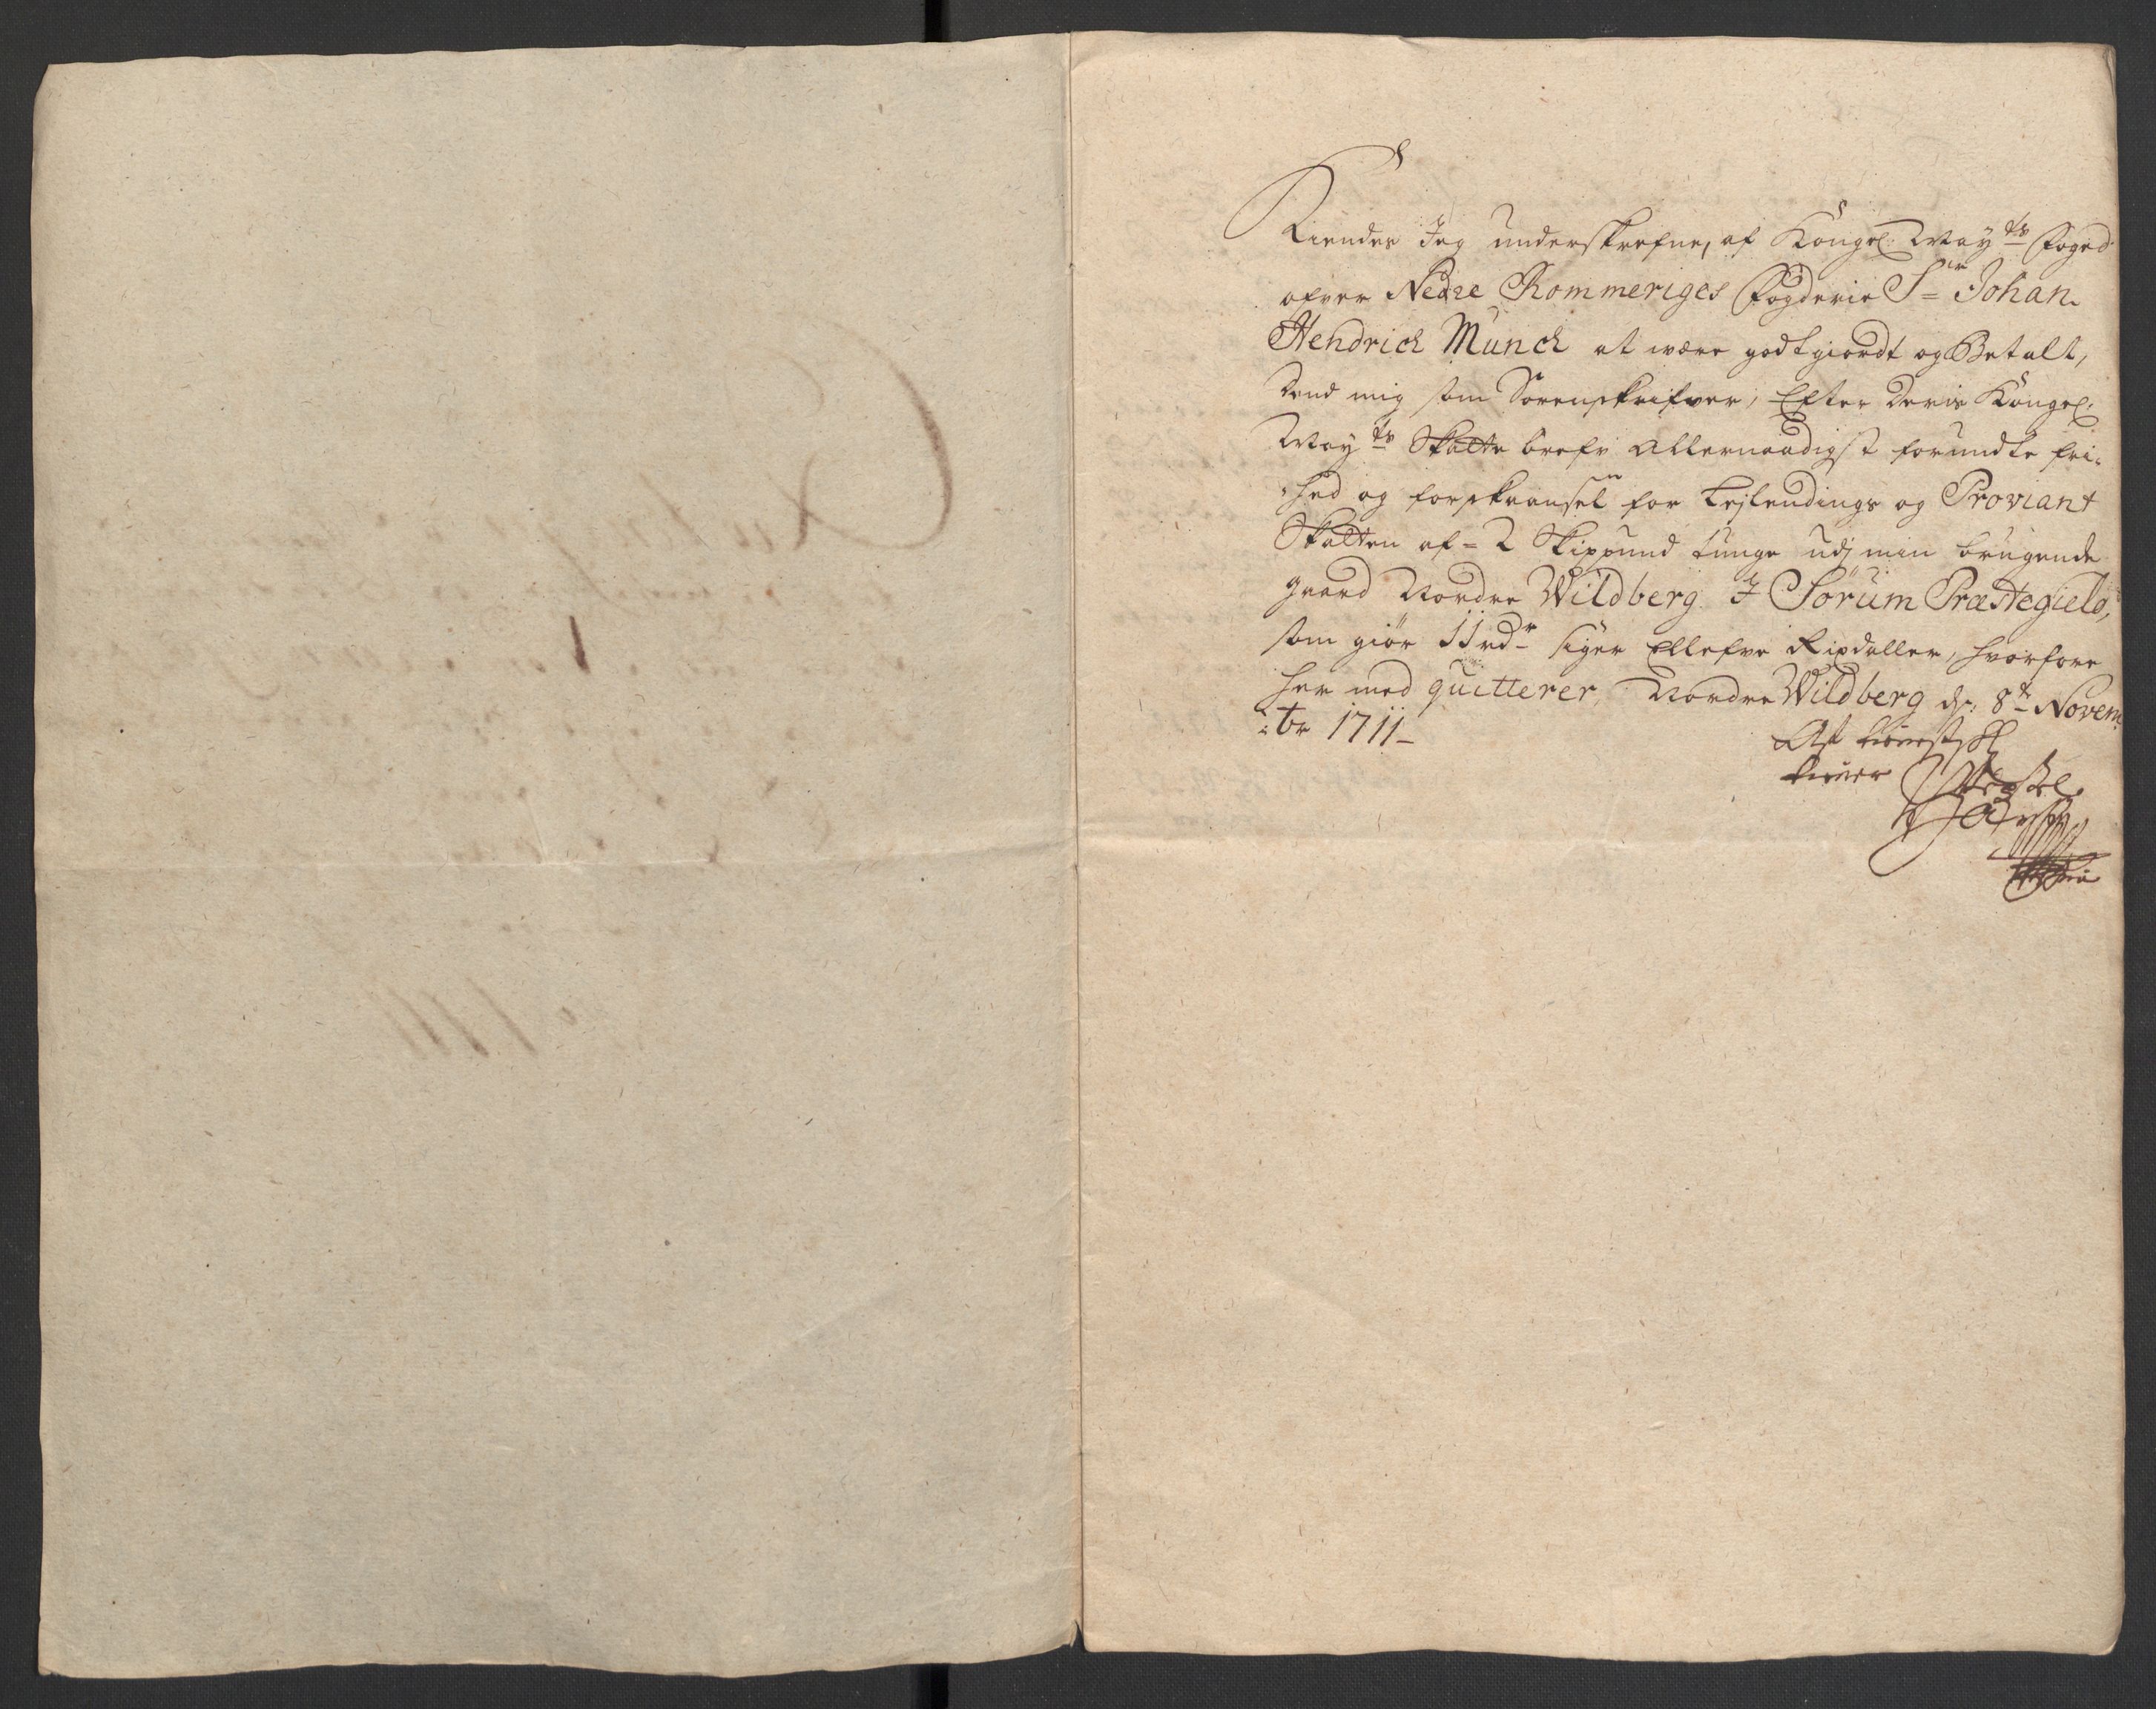 Kiendes Jeg underskrefne, af Kongel: May:ts Foged
ofver Nedre Rommeriges Fogderie Sr Johan
Hendrich Munch at være godtgiordt og Betalt,
dend mig som Sorenskrifver, Efter deris Kongel:
May:ts Skatte brefv Allernaadigst forundte fri-
hed og forskaansel for Leylendings og Proviant
Skatten af = 2 Skippund tunge udj min brugende
gaard Nordre Wildberg I Sørum Præstegield,
som giør 11 rdr siger Ellefve Rixdaller, hvorfore
her med quitterer, Nordre Wildberg d: 8t Novem
br 1711